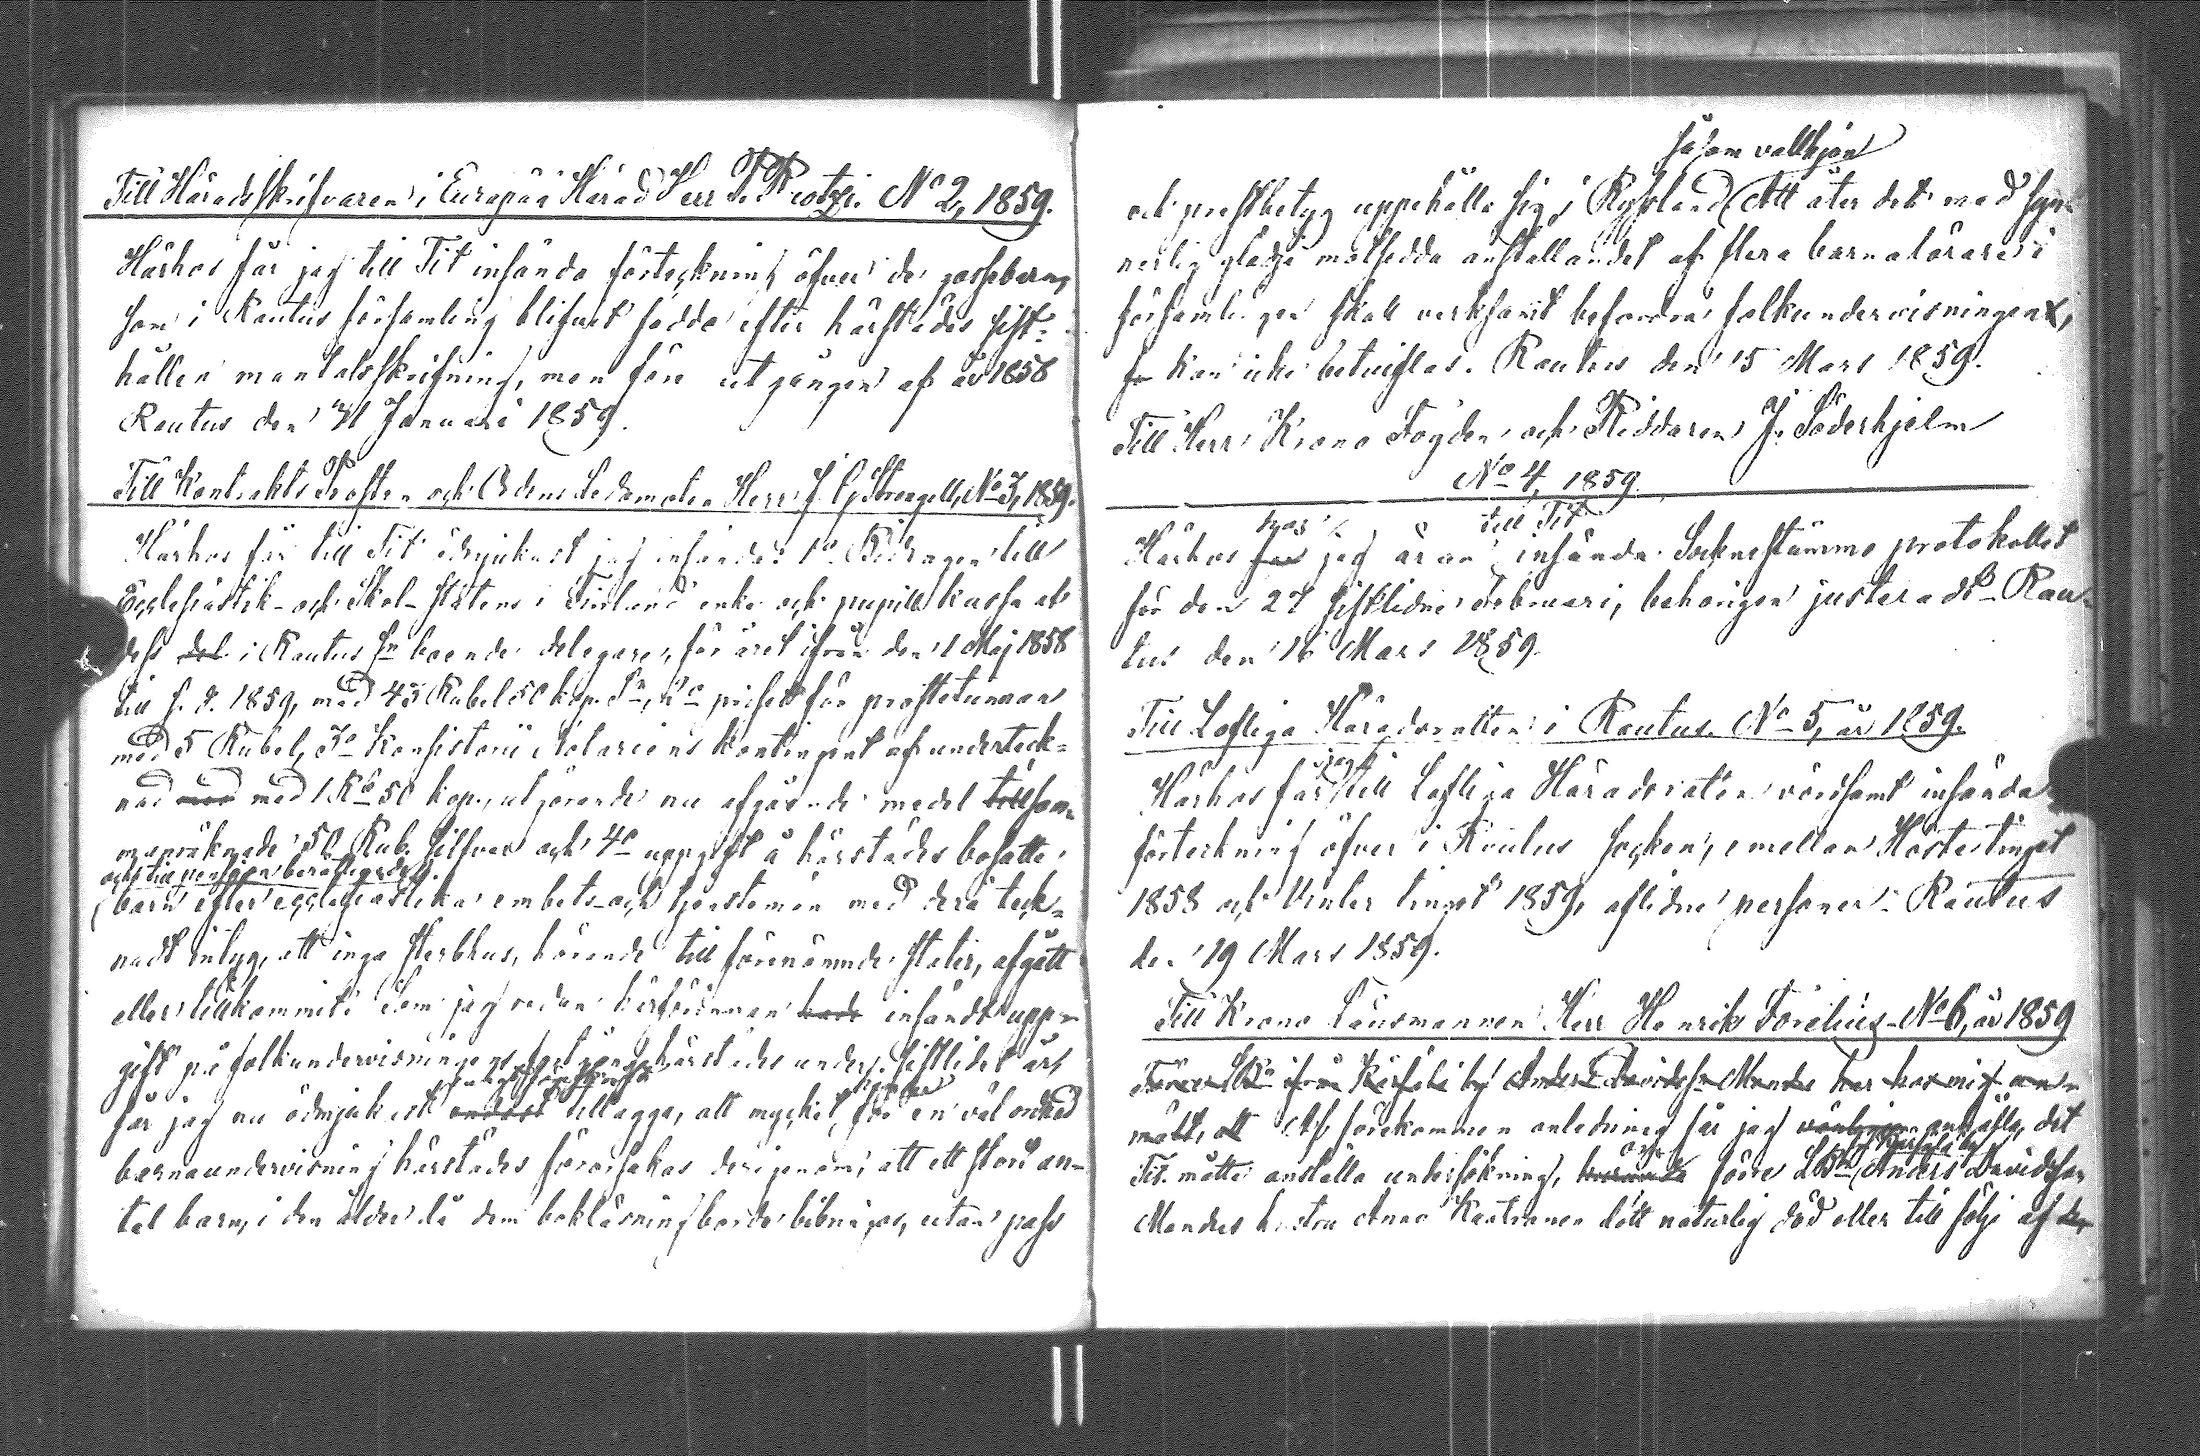 Till Häradsskrifvaren i Euräpää Härad Herr Nº 2, 1859.
Härhos får jag till Tit insända förteckning öfver de gossebarn,
som i Rautus församling blifvit födda efter härstädes sist-
hållen mantalsskrifning, men före utgången af år 1858
Rautus den 31 Januari 1859.
Till Kontrakts Prosten och Ordens Ledamoten Herr Strengell, Nº 3, 1859.
Härhos får till Tit ödmjukast jag insända: 1º Bidragen till
Ecclesiastik- och Skol-Statens i Finland enke och pupill kassa af
dess del i Rautus Sn boende delegare, för året ifrån den 1 Maj 1858
till s. d. 1859, med 45 Rubel 50 kop. Sr, 2º priset för prosttunnan
med 5 Rubel, 3º Konsistorii Notariens kontingent af underteck-
nad med med 1 Rb 50 kop., utgörande nu afgående medel tillsam-
manräknade 50 Rub. silfver och 4º uppgift å härstädes bosatte
och till pension berättigade
barn efter ecclesiastika embets- och tjenstemän med derå teck-
nadt intyg, att inga sterbhus, hörande till förenämnde stater, afgått
eller tillkommit. Som jag redan härförinnan hade insändt upp-
gift på folkundervisningens fortgång härstädes under sistlidet år,
får jag nu ödmjukast endast tillägga, att mycket för en väl ordnad
barnaundervisning härstädes förorsakas derigenom, att ett stort an-
tal barn, i den ålder då dem bokläsning borde bibringas, utan pass
såsom vallhjon
och prestbetyg uppehålla sig i Ryssland. Att åter det med syn-
nerlig glädje motsedda anställandet af flera barnalärare i
församlingen skall verksamt befordra folkundervisningen,
så kan icke betviflas. Rautus den 15 Mars 1859.
Till Herr Krono Fogden och Riddaren J. Söderhjelm
Nº 4, 1859.
till Tit
Härhos får jag äran insända Sockenstämmo protokollet
för den 27 sistlidne Februari, behörigen justeradt. Rau-
tus den 16 Mars 1859.
Till Lofliga Häradsrätten i Rautus. Nº 5, år 1859.
jag
Härhos får till Lofliga Häradsrätten vördsamt insända
förteckning öfver i Rautus socken, emellan Höstetinget
1858 och Vinter tinget 1859, aflidne personer. Rautus
den 19 Mars 1859.
Till Krono Länsmannen Herr Henrik Forelius. Nº 6, år 1859
ifrån by Anders Davidsson Mandes har hos mig an-
mält, att Af förekommen anledning får jag vänligen anhålla, det
Tit. måtte anställa undersökning, huruvida förre Anders Davidsson
Mandes hustru Anna dött naturlig död eller till följe af